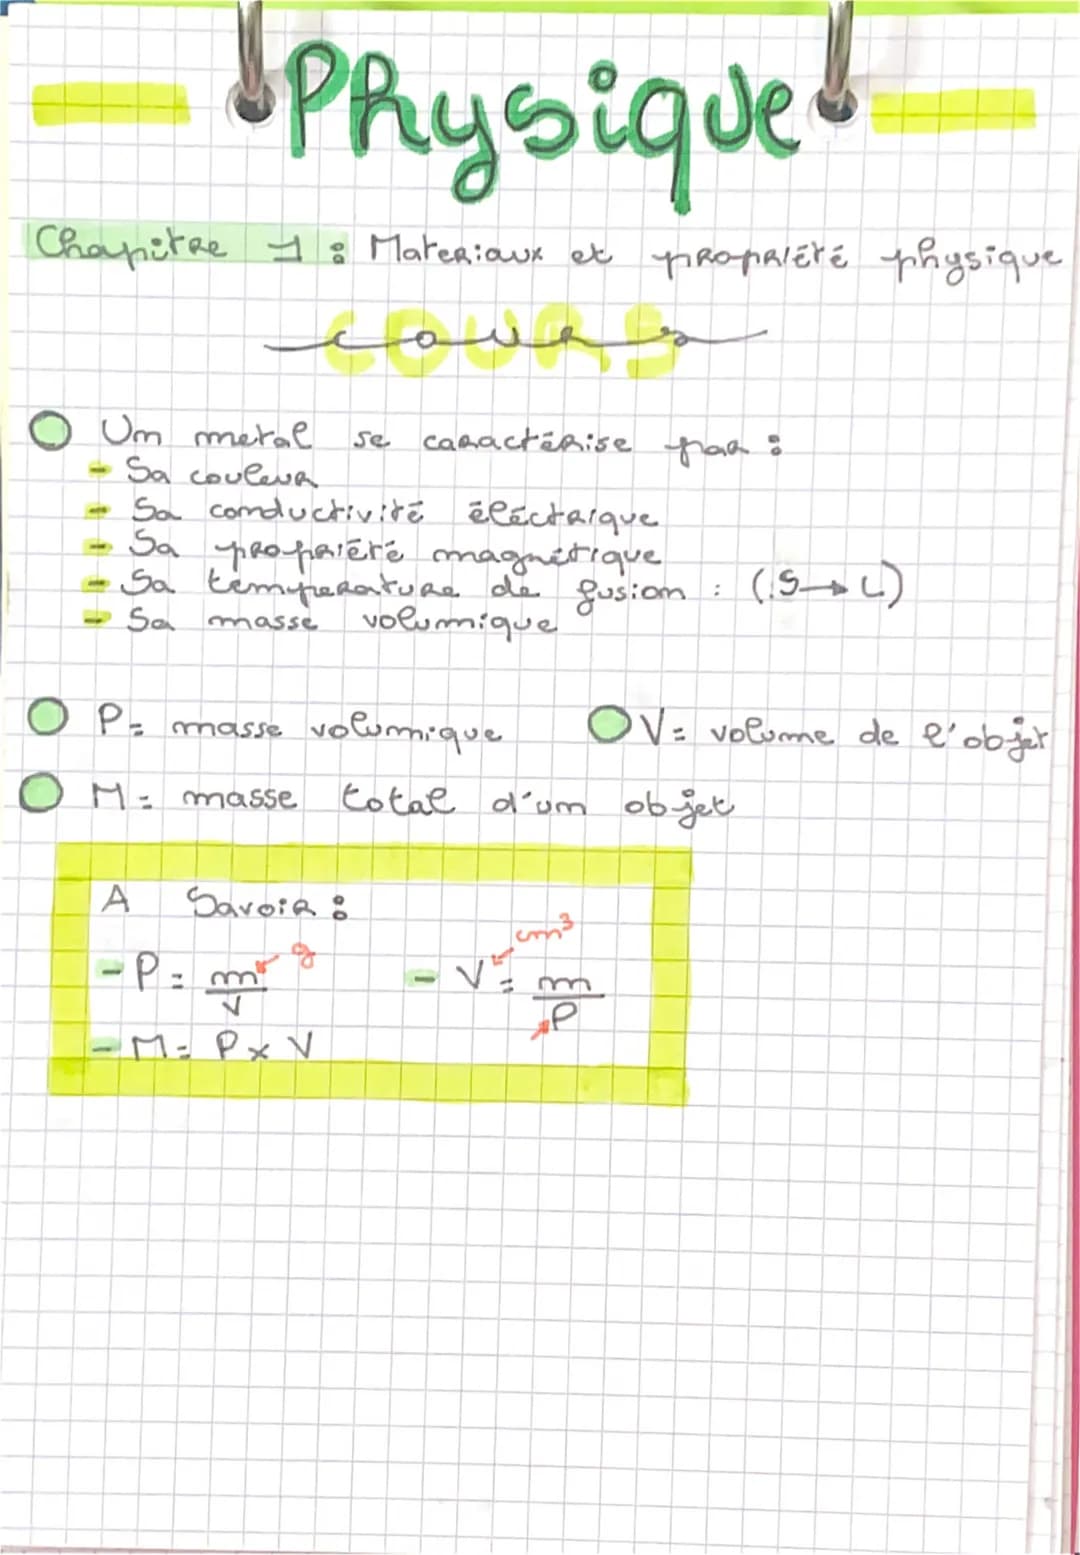 Physique
Chapitre 1 : Materiaux et propriété physique
COURS
cours
Un metal se caractérise par :
- Sa couleur
- Sa conductivité éléctrique
- Sa propriété magnétique
- Sa température de fusion : (S→L)
- Sa masse volumique
P= masse volumique V= volume de l'objet
M= masse total d'un objet
A Savoir :
cm³
- P = m/V g - V = m/P
- M= P x V